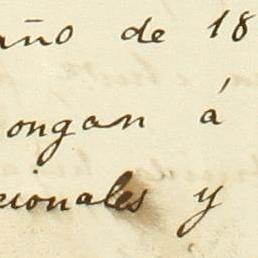 año de 18
ongan á
cionales y